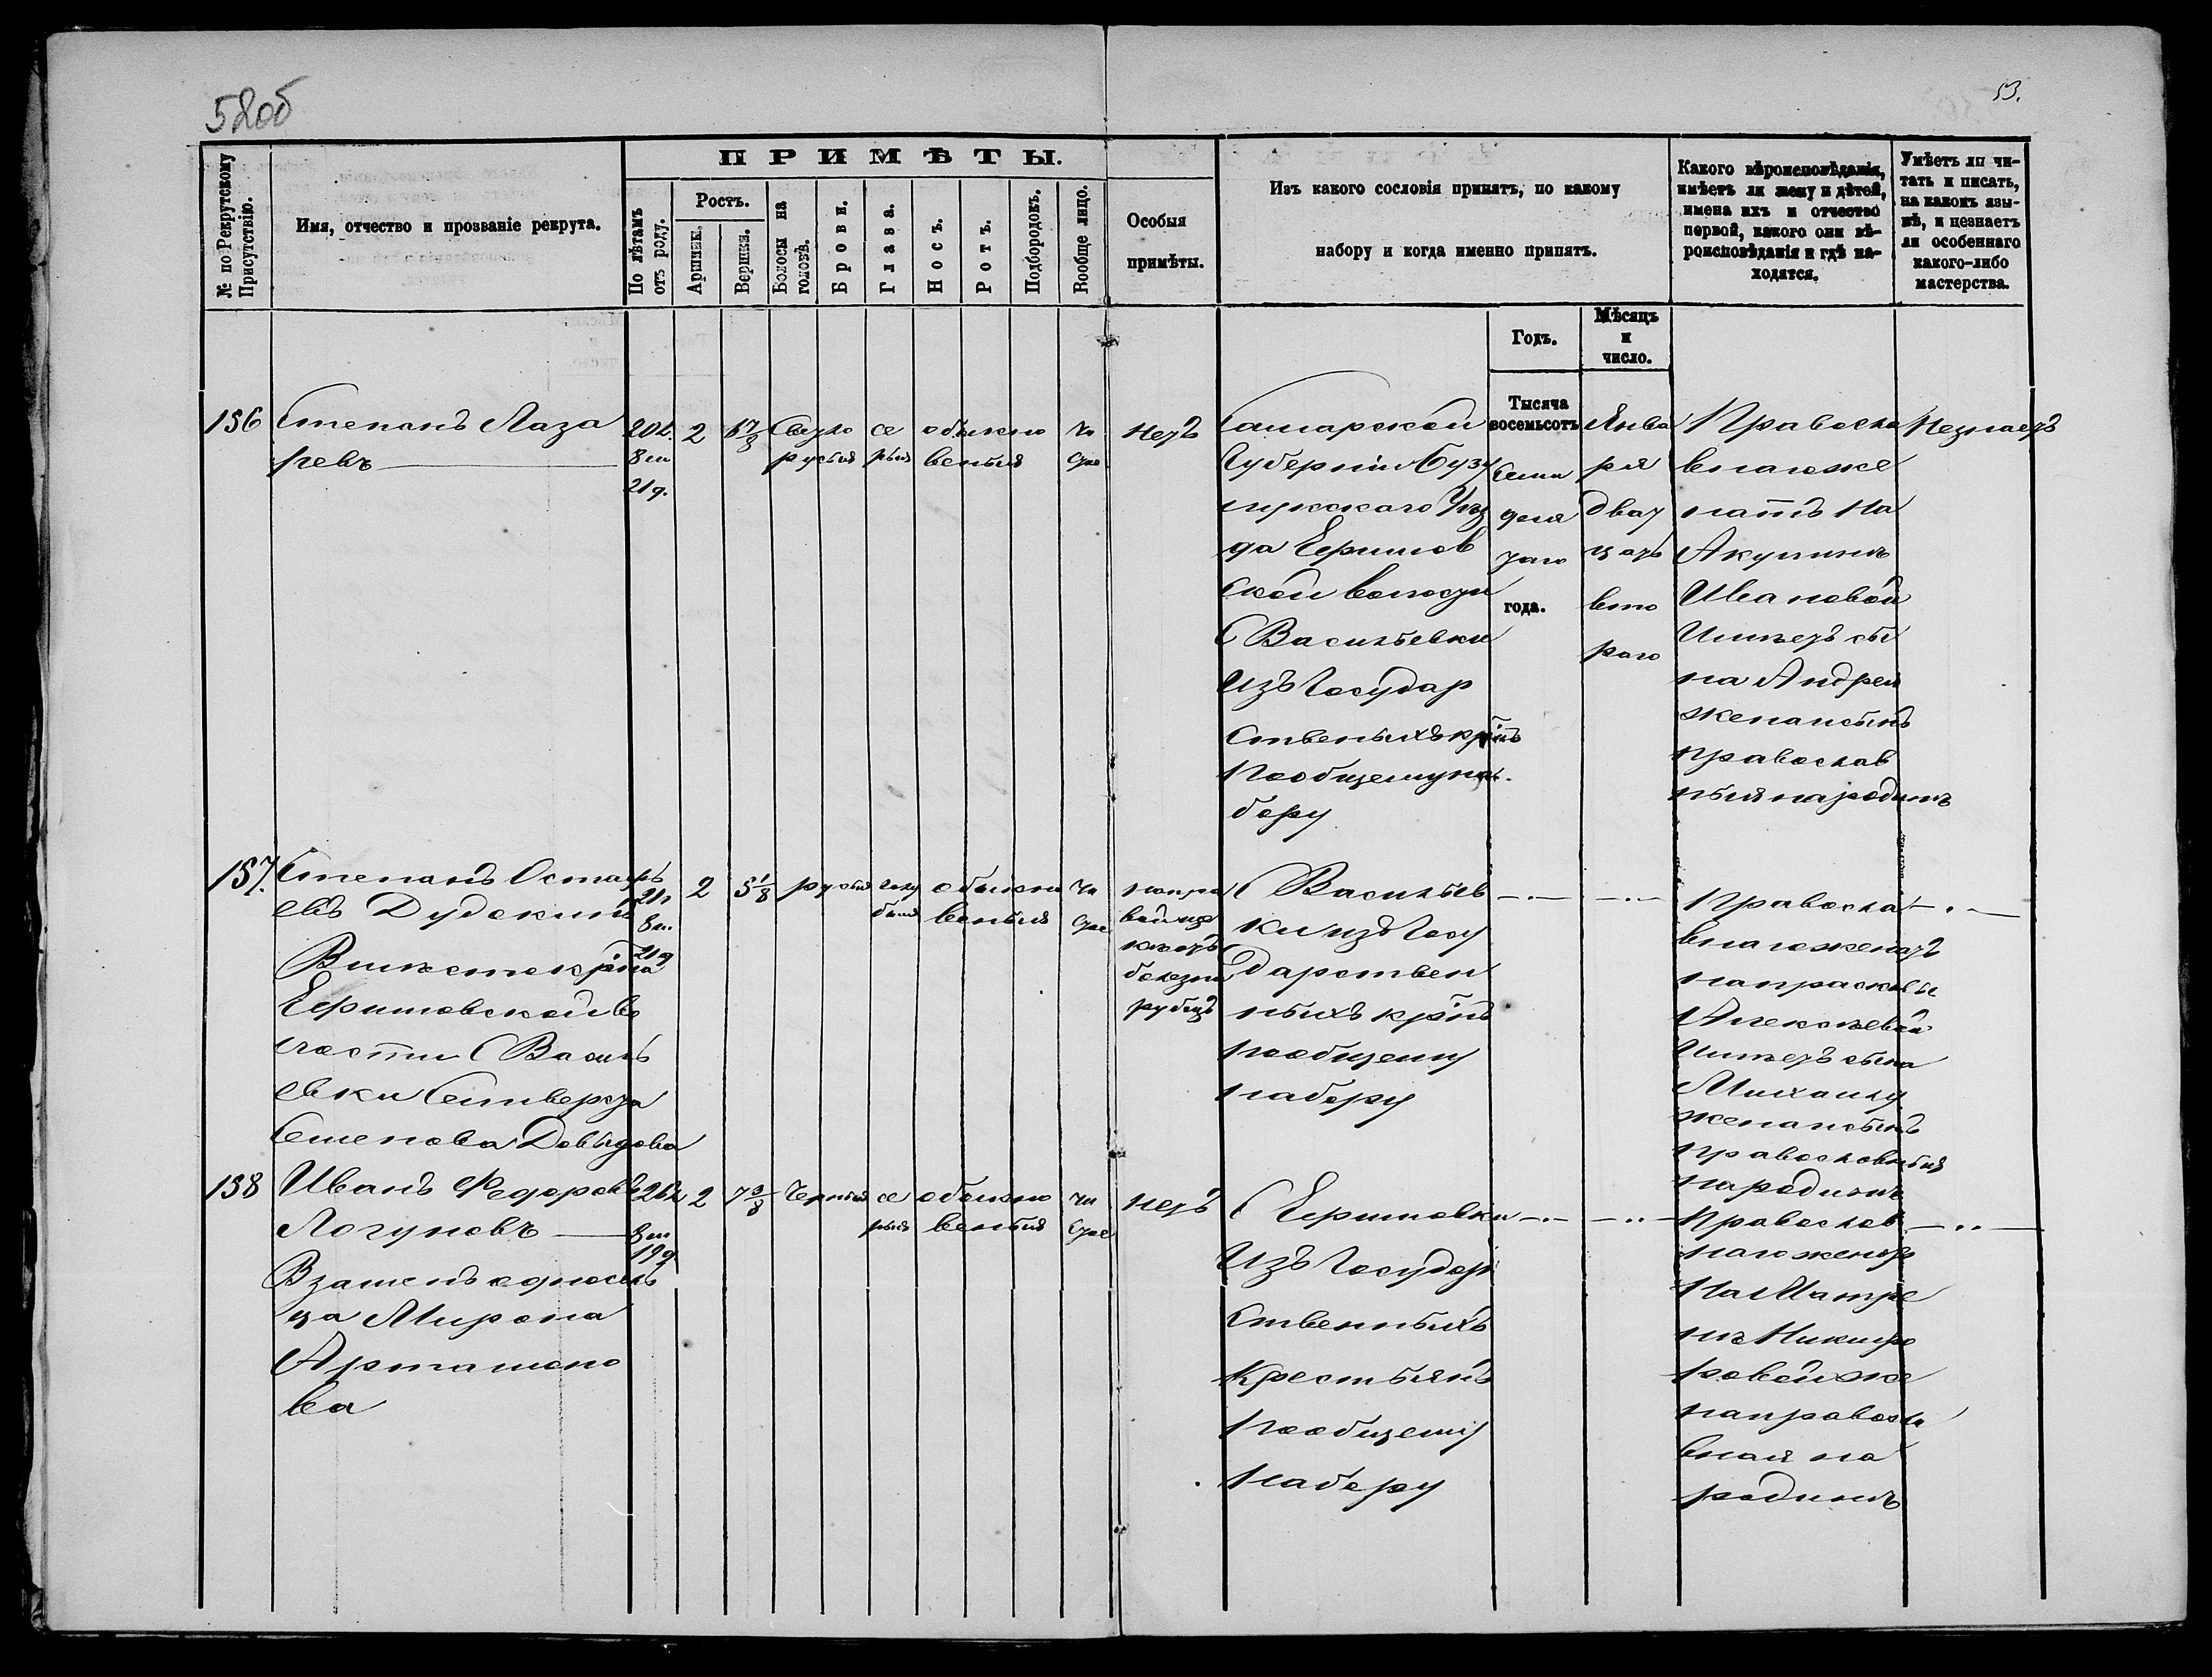 52об
53.
№ по Рекрутскому Присутствію.
Имя, отчество и прозваніе рекрута.
ПРИМѢТЫ.
По лѣтамъ отъ роду.
Ростъ.
Аршины.
Вершки.
Волосы на головѣ.
Брови.
Глаза.
Носъ.
Ротъ.
Подбородокъ.
Вообще лицо.
Особыя
примѣты.
Изъ какого сословія принятъ, по какому
набору и когда именно принятъ.
Какого вѣроисповѣданія,
имѣетъ ли жену и дѣтей,
имена ихъ и отчество
первой, какого они вѣ-
роисповѣданія и гдѣ на-
ходятся.
Умѣетъ ли чи-
тать и писать,
на какомъ язы-
кѣ, и незнаетъ
ли особеннаго
какого-либо
мастерства.
Годъ.
Мѣсяцъ
и
число.
156
Степанъ Лаза
ревъ
20 л.
8 м
21 д.
2
Свѣтло
русыя
се
рыя
обыкно
венныя
чи
стое
нетъ
Самарской
Губерніи Бузу
лукскаго Уѣз
да Ефимов
ской волости
С Васильевки
изъ Государ
ственыхъ крнъ
пообщему на
бору
Тысяча
восемьсотъ
семи
деся
таго
года.
Янва
ря
двад
цать
вто
раго
Правосла
внаго же
натъ на
Акулинѣ
Ивановой
Имѣетъ сы
на Андрея
жена и сынъ
православ
ныя народинѣ
Незнаетъ
157.
Степанъ Остафь
евъ Дудокинъ
Вместо крна
Ефимовской во
лости С Василь
евки Сетиверста
Семенова Давыдова
21 л
8 м.
21 д
2
5 1/8
русыя
голу
быя
обыкно
венныя
чи
стое
болезни
рубецъ
С Васильев
ки изъ Госу
дарствен
ныхъ крнъ
пообщему
набору
Правосла
внаго женатъ
на прасковьи
Алексѣевой
Имѣетъ сына
Михаилу
жена и сынъ
православныя
народинѣ
158
Иванъ Федоровъ
Логуновъ
Взаменъ односель
ца Мирона
Арташено
ва
26 л
8 м
19 д.
2
7 3/8
Черныя
се
рыя
обыкно
венныя
чи
стое
нетъ
С Ефимовки
изъ Государ
ственныхъ
Крестьянъ
пообщему
набору
Православ
наго женатъ
на Матре
нѣ Никифо
ровой же
на правосла
вная на
родинѣ